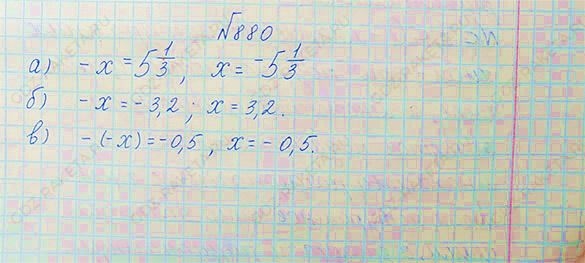 №880
а) -x = 5 1/3, x = -5 1/3
б) -x = -3,2; x = 3,2.
в) -(-x) = -0,5, x = -0,5.